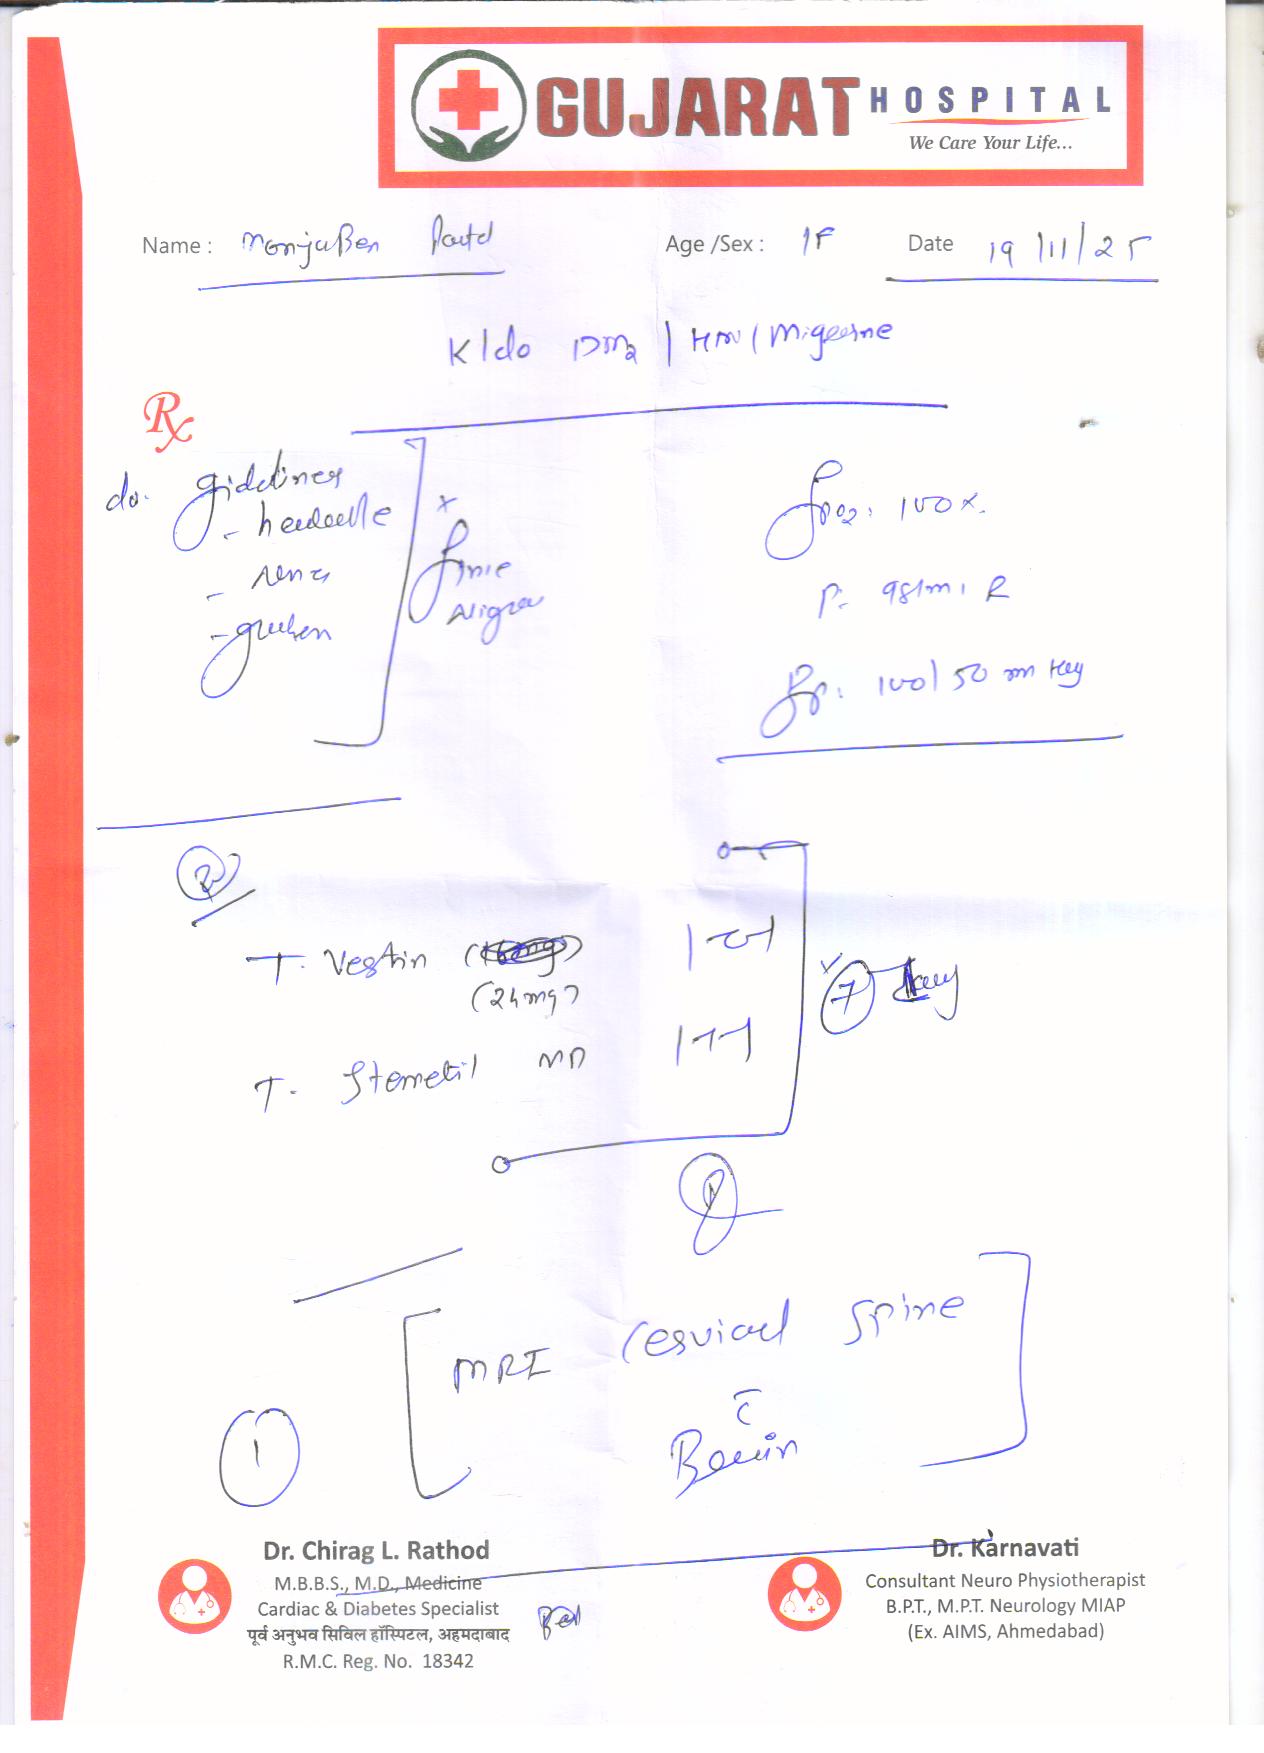 GUJARAT HOSPITAL
We Care Your Life...
Name : ManjuBen Patel Age /Sex : 1F Date 19/11/25
K/c/o DM2 / HTN / Migraine
Rx
c/o. giddiness
- headache
-
-
since
SPO2: 100 %.
P- 98/min R
BP: 100/50 mm Hg
T. Vestin
(24mg)
7 day
T. Stemetil MD
MRI Cervical Spine
c̄
Brain
1
Dr. Chirag L. Rathod
M.B.B.S., M.D., Medicine
Cardiac & Diabetes Specialist
पूर्व अनुभव सिविल हॉस्पिटल, अहमदाबाद
R.M.C. Reg. No. 18342
Dr. Karnavati
Consultant Neuro Physiotherapist
B.P.T., M.P.T. Neurology MIAP
(Ex. AIMS, Ahmedabad)